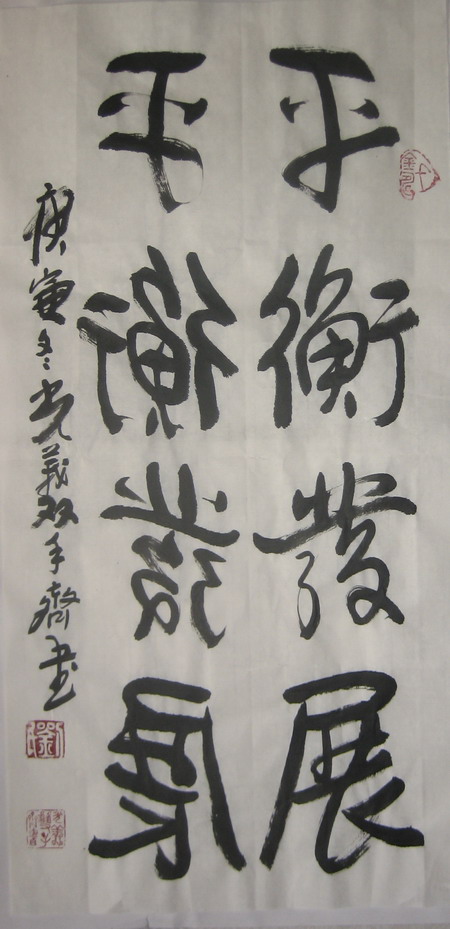 平衡發展
平衡發展
庚寅冬光義双手齊書